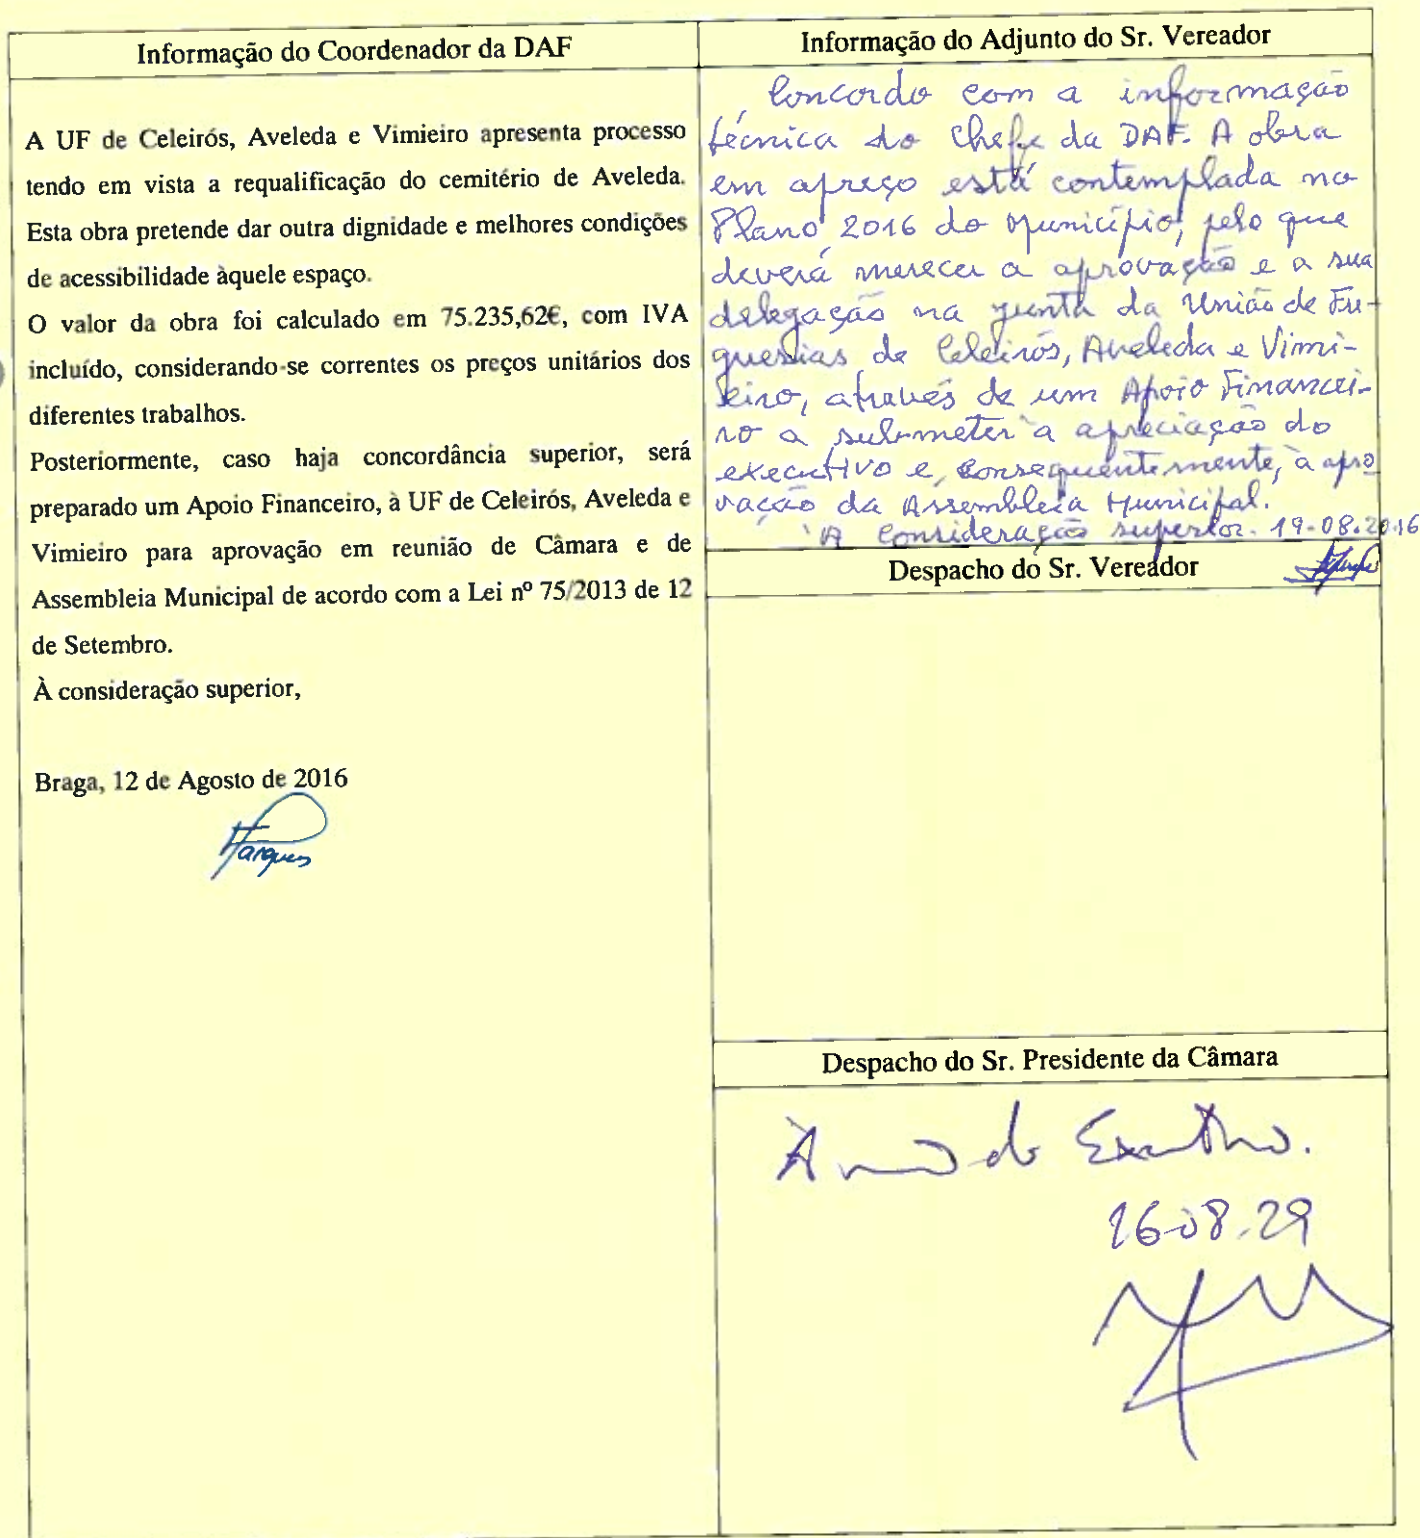 Informação do Coordenador da DAF
A UF de Celeirós, Aveleda e Vimieiro apresenta processo
tendo em vista a requalificação do cemitério de Aveleda.
Esta obra pretende dar outra dignidade e melhores condições
de acessibilidade àquele espaço.
O valor da obra foi calculado em 75.235,62€, com IVA
incluído, considerando-se correntes os preços unitários dos
diferentes trabalhos.
Posteriormente, caso haja concordância superior, será
preparado um Apoio Financeiro, à UF de Celeirós, Aveleda e
Vimieiro para aprovação em reunião de Câmara e de
Assembleia Municipal de acordo com a Lei nº 75/2013 de 12
de Setembro.
À consideração superior,
Braga, 12 de Agosto de 2016
Informação do Adjunto do Sr. Vereador
Concordo com a informação
técnica do Chefe da DAF. A obra
em apreço está contemplada no
Plano 2016 do Município, pelo que
deverá merecer a aprovação e a sua
delegação na Junta da União de Fre-
guesias de Celeirós, Aveleda e Vimi-
eiro, através de um Apoio Financei-
ro a submeter à apreciação do
executivo e, consequentemente, à apro
vação da Assembleia Municipal.
À Consideração superior. 19-08.2016
Despacho do Sr. Vereador
Despacho do Sr. Presidente da Câmara
À do Executivo.
16.08.29